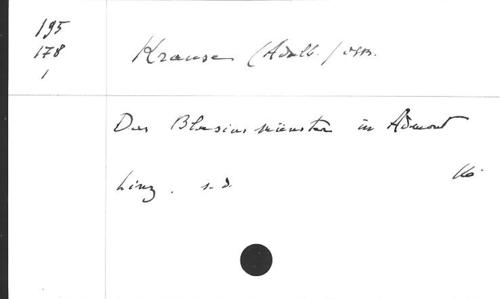 195
178
1
Krause (Adalb.) OSB.
Das Blasiusmünster in Admont
Linz. s.d. 16.